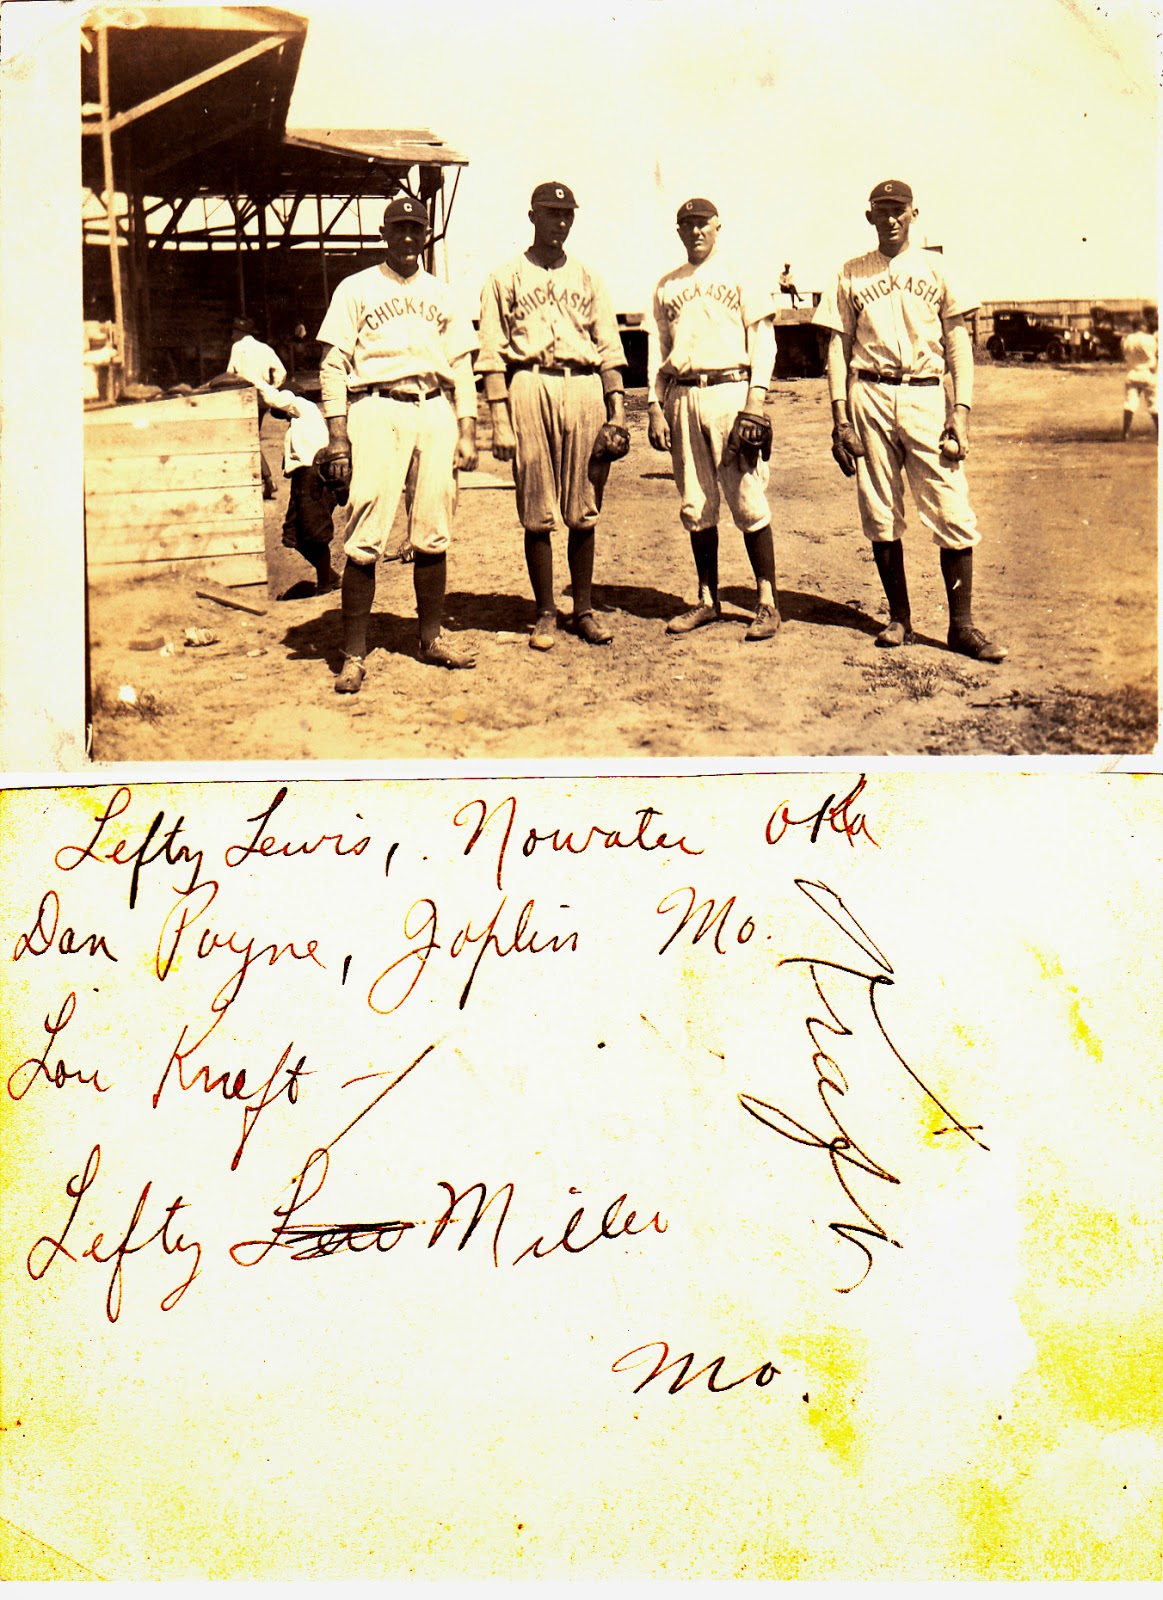 C
C
C
C
CHICKASH
CHICKASHA
CHICKASHA
CHICKASHA
Lefty Lewis, Nowater Okla
Dan Payne, Joplin Mo.
Lou Kraft -
Lefty Lew Miller
Mo.